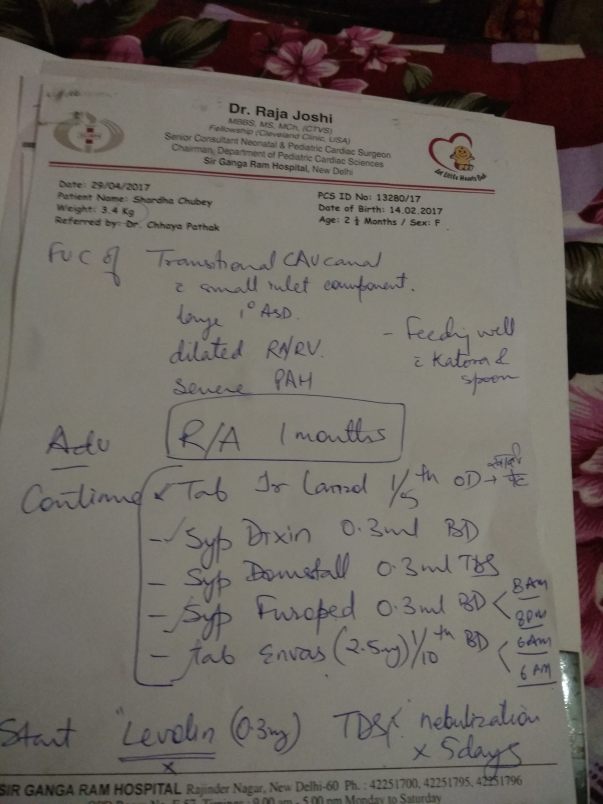 Dr. Raja Joshi
MBBS, MS, MCh, (CTVS)
Fellowship (Cleveland Clinic, USA)
Senior Consultant Neonatal & Pediatric Cardiac Surgeon
Chairman, Department of Pediatric Cardiac Sciences
Sir Ganga Ram Hospital, New Delhi
Date: 29/04/2017
Patient Name: Shardha Chubey
Weight: 3.4 Kg
Referred by: Dr. Chhaya Pathak
PCS ID No: 13280/17
Date of Birth: 14.02.2017
Age: 2 ½ Months / Sex: F
FUC of Transitional CAV canal
c small inlet component.
large 1° ASD.
dilated RA/RV.
severe PAH
- Feeding well
c Katora &
spoon
Adv
R/A 1 months
Continue
Tab Jr Lanzol 1/5th OD →
- Syp Dixin 0.3ml BD
- Syp Domstall 0.3ml TDS
- Syp Furoped 0.3ml BD < 8AM
8PM
- tab Envas (2.5mg) 1/10th BD < 6AM
6AM
Start "Levolin (0.3mg) TDS nebulization
x 5days
SIR GANGA RAM HOSPITAL Rajinder Nagar, New Delhi-60 Ph. : 42251700, 42251795, 42251796
9.00 am - 5.00 pm Monday to Saturday